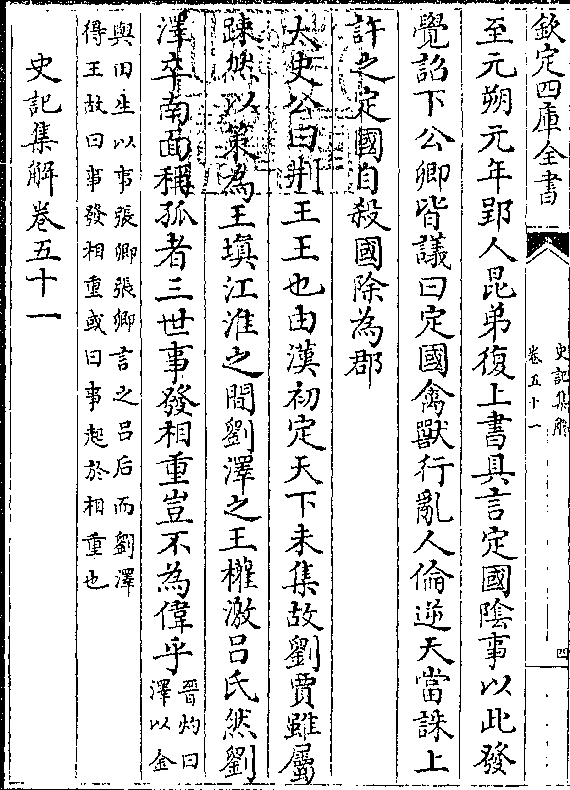 欽定四庫全書
史記集解
卷五十一
四
至元朔元年郢人昆弟復上書具言定國隂事以此發
覺詔下公卿皆議曰定國禽獸行亂人倫逆天當誅上
許之定國自殺國除為郡
太史公曰荆王王也由漢初定天下未集故劉賈雖屬
踈然以策為王填江淮之間劉澤之王權激吕氏然劉
澤卒南面稱孤者三世事發相重豈不為偉乎
晉灼曰
澤以金
與田生以事張卿張卿言之吕后而劉澤
得王故曰事發相重或曰事起於相重也
史記集解卷五十一